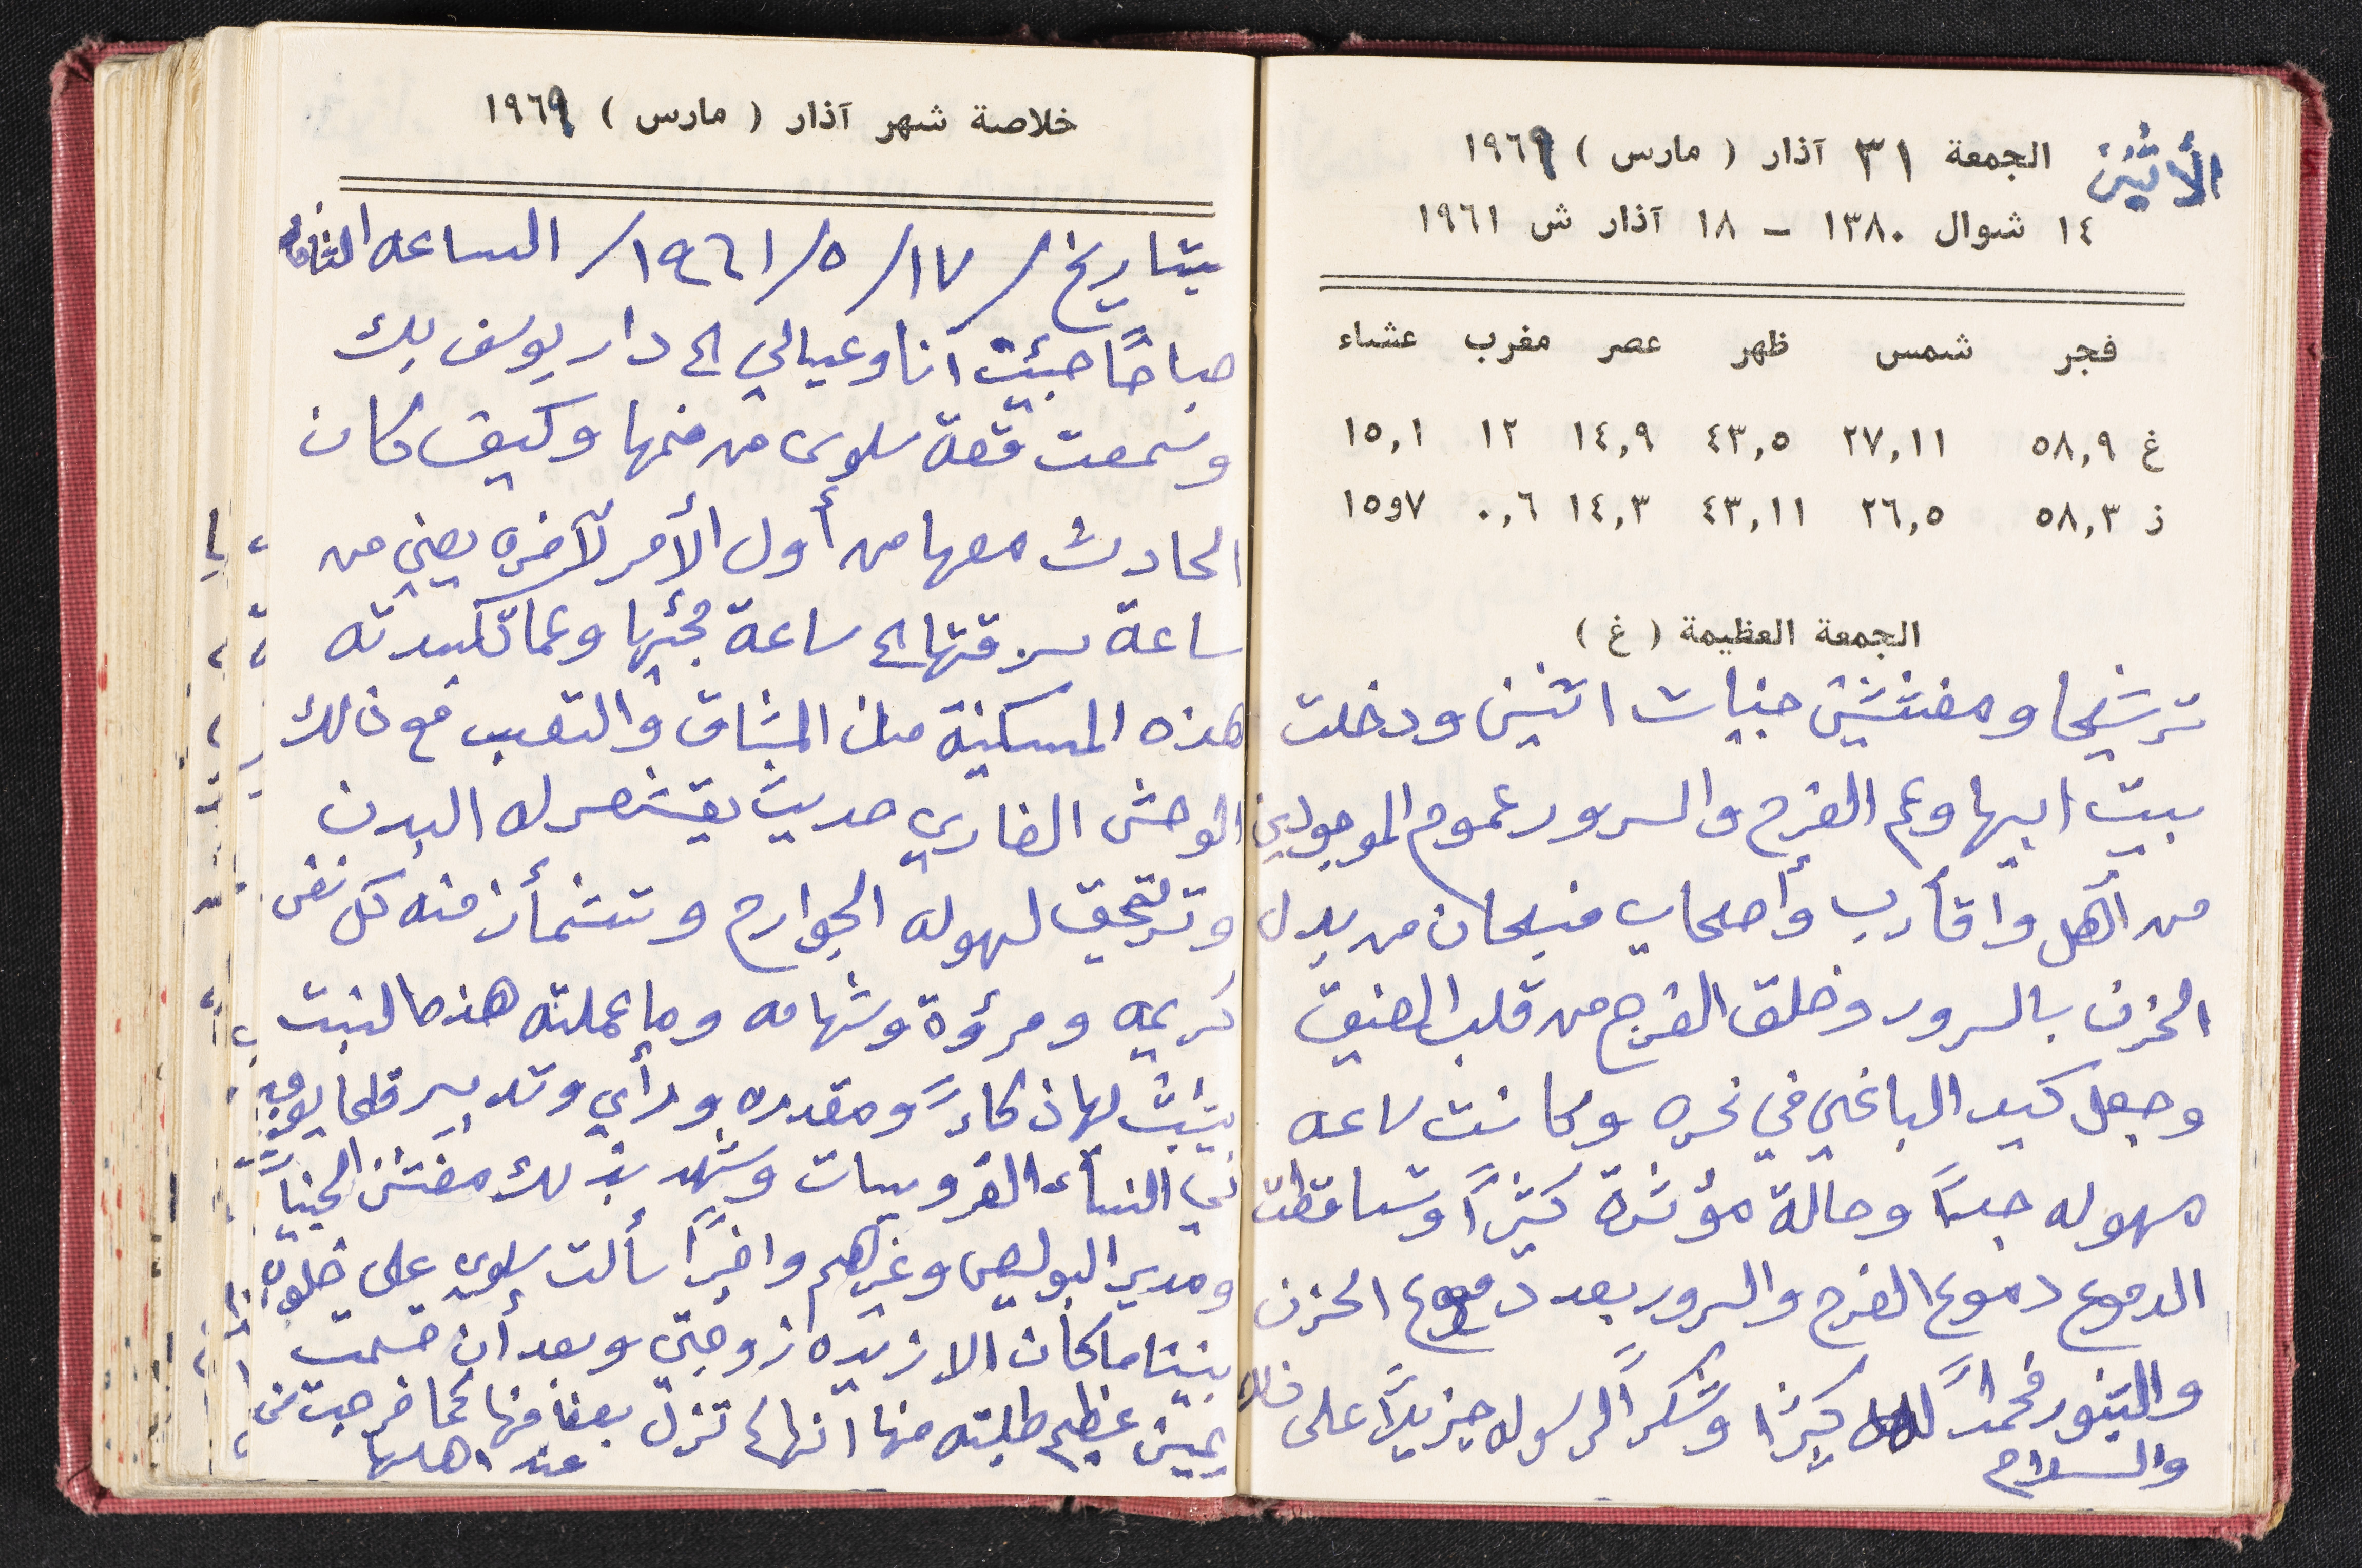 الأثنين الجمعة ٣١ آذار ( مارس ) ١٩٦٩
١٤ شوال ١٣٨٠ – ١٨ آذار ش ١٩٦١
فجر شمس ظهر عصر مغرب عشاء
غ ٥٨,٩ ٢٧,١١ ٤٣,٥ ١٤,٩ ١٢ ١٥,١
ز ٥٨,٣ ٢٦,٥ ٤٣,١١ ١٤,٣ ٠,٦ ٧و١٥
الجمعة العظيمة ( غ )
ترشيحا ومفتشين جنيات اثنين ودخلت
بيت ابيها وعم الفرح والسرور عموم الموجودين
من أهل وأقارب وأصحاب فسبحان من بدل
الحزن بالسرور وخلق الفرج من قلب الضيق
وجعل كيد الباغي في نحره وكانت ساعه
مهوله جداً وحالة مؤثرة كثيراً وتساقطت
الدموع دموع الفرح والسرور بعد دموع الحزن
فحمداً لله كثيرا وشكراً لرسوله جزيلاً على ذلك
والسلام
خلاصة شهر آذار ( مارس ) ١٩٦٩
بتاريخ /١٧/٥/١٩٦١/ الساعه الثامنه
صباحاً جئت أنا وعيالي الى دار يوسف بك
وسمعت قصة سلوى من فمها وكيف كان
الحادث معها من أول الأمر لآخره يعني من
ساعة سرقتها الى ساعة مجئها وعما تكبدته
هذه المسكينة من المشاق والتعب مع ذالك
الوحش الضاري حديث يقشعر له البدن
وترتجف لهوله الجوارح وتشمأز منه كل نفس
كريمه ومرؤة وشهامه وما عملته هذه البنت
يثبت لها ذكاءً ومقدره ورأي وتدبير قلما يوجد
في النساء القرويات وشهد بذلك مفتش الجنيات
ومدير البوليص وغيرهم واخيراً سألت سلوى على خلوه
بيننا ما كان الا زيده زوجتي وبعد أن قسمت
يمين عظيم طلبته منها انها لم تزل بعفافها كما خرجت من
عند اهلها